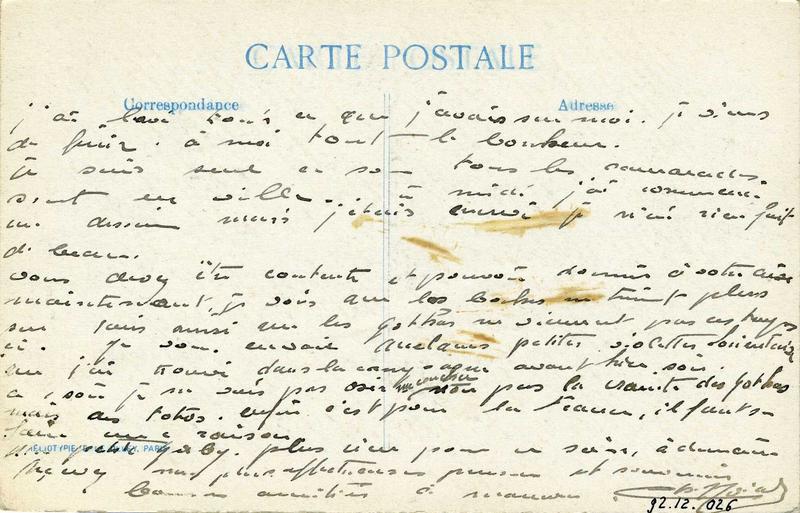 CARTE POSTALE
Correspondance
Adresse
j'ai lavé tout ce que j'avais sur moi. je viens
de finir. à moi tout le bonheur.
je suis seul ce soir tous les camarades
sont en ville. à midi j'ai commencé
un dessin mais j'étais je n'ai rien fait
de beau.
vous devez être contente et pouvoir dormir à votre aise
maintenant, je vois que les boches ne tirent plus
sur Paris aussi que les gothas ne viennent pas ces temps
ci. je vous envoie quelques petites violettes
que j'ai trouvé dans la campagne avant hier soir.
ce soir je ne vais pas oser me coucher non pas la crainte des gothas
mais des totos. enfin c'est pour la France, il faut se
faire une raison
petite plus rien pour ce soir, à demain
Recevez mes plus affectueuses pensées et souvenirs
bonnes amitiés à maman
HELIOTYPIE PARIS
92.12.026